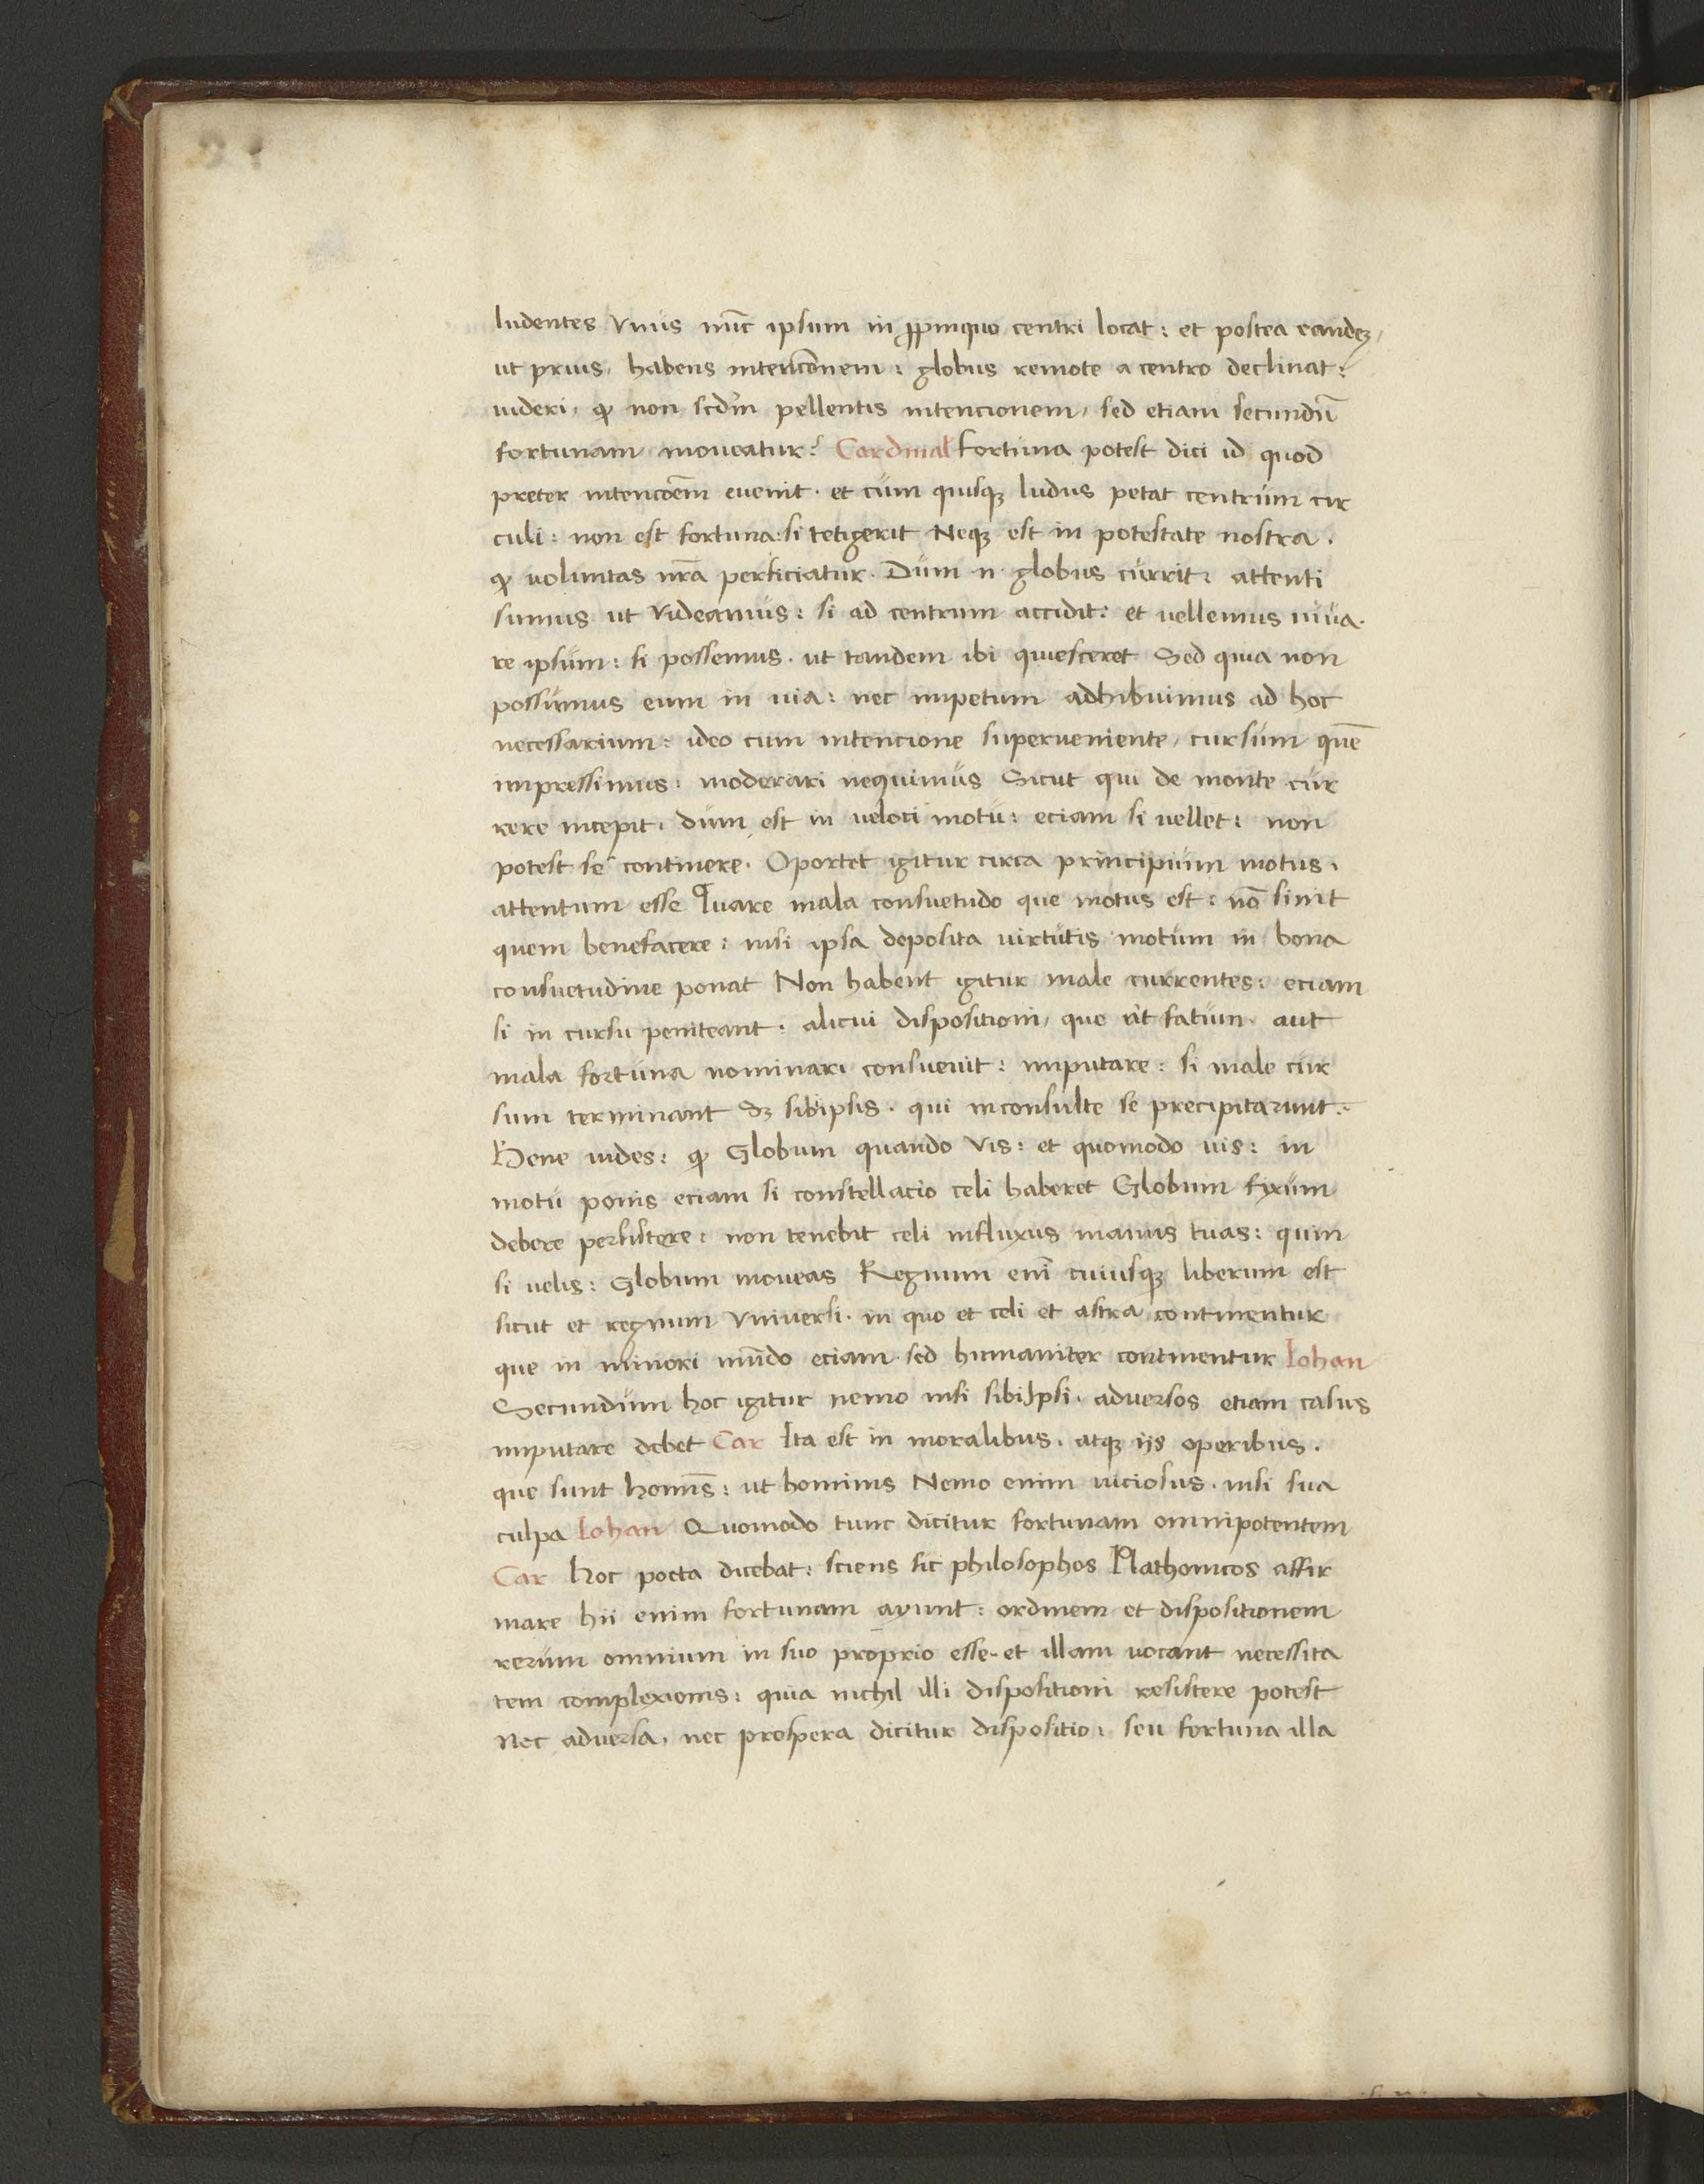 ludentes vnus nūc ipsum in ꝓpinquo centri locat: et postea eandeꝫ,
ut prius, habens intenc̄onem: globus remote a centro declinat:
uideri, ꝙ non scd̄m pellentis intencionem, sed etiam secundū
fortunam moueatur? Cardinal Fortuna potest dici id quod
preter intenc̄oēm euenit. et cum quisqꝫ ludus petat centrum cir
culi: non est fortuna: si tetigerit Neqꝫ est in potestate nostra.
ꝙ voluntas nr̄a perficiatur. Dum .n. globus currit: attenti
sumus ut videamus: si ad centrum accidit: et vellemus iuua.
re ipsum: si possemus. ut tandem ibi quiesceret Sed quia non
possumus eum in uia: nec impetum adhibuimus ad hoc
necessarium: ideo cum intencione superueniente, cursum quē
impressimus: moderari nequimus Sicut qui de monte cur
rere incepit. dum est in veloci motu: eciam si vellet: non
potest se continere. Oportet igitur circa principium motus.
attentum esse Quare mala consuetudo que motus est: nō sinit
quem benefacere: nisi ipsa deposita virtutis motum in bona
consuetudine ponat Non habent igitur male currentes: eciam
si in cursu peniteant: alicui dispositioni, que ut fatum. aut
mala fortuna nominari consueuit: imputare: si male cur
sum terminant sꝫ sibiipsis. qui inconsulte se precipitarunt.
Bene uides: ꝙ Globum quando vis: et quomodo vis: in
motu ponis eciam si constellacio celi haberet Globum fixum
debere persistere: non tenebit celi influxus manus tuas: quin
si velis: Globum moueas Regnum enī cuiusqꝫ liberum est
sicut et regnum vniuersi. in quo et celi et astra continentur
que in minori mūdo eciam. sed humaniter continentur Iohan
Secundum hoc igitur nemo nisi sibiIpsi. aduersos etiam casus
imputare debet Car Ita est in moralibus. atqꝫ ijs operibus.
que sunt homīs: ut hominis Nemo enim viciosus. nisi sua
culpa Iohan Quomodo tunc dicitur fortunam omnipotentem
Car Hoc poeta dicebat: sciens sic philosophos Plathonicos affir
mare hii enim fortunam ayunt: ordinem et dispositionem
rerum omnium in suo proprio esse. et illam vocant necessita
tem complexionis: quia nichil illi dispositioni resistere potest
Nec aduersa. nec prospera dicitur dispositio: seu fortuna illa